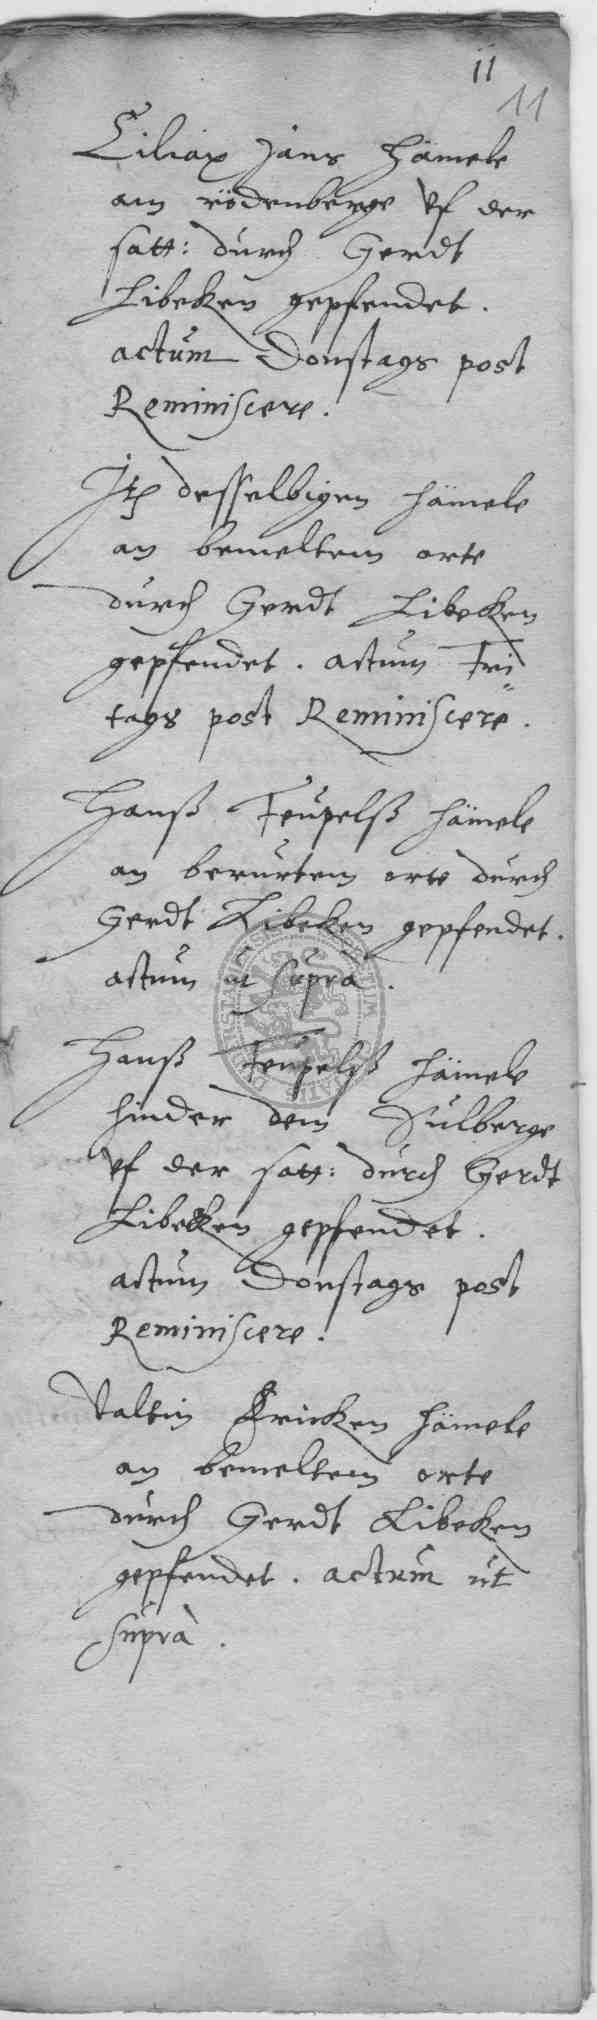 11
11
Ciliax Jans hämele
am rödenberge vf der
satt: durch Gerdt
Libeken gepfendet.
actum Donstags post
Reminiscere.
Jtem desselbigen hämele
an bemeltem orte
durch Gerdt Libecken
gepfendet. actum Fri
tags post Reminiscere.
Hanß Teupelß hämele
an berurtem orte durch
Gerdt Libeken gepfendet.
actum ut suprà.
Hanß Teupelß hämele
hinder dem Sulberge
vf der satt: durch Gerdt
Libecken gepfendet.
actum Donstags post
Reminiscere.
Valtin Fricken hämele
an bemeltem orte
durch Gerdt Libeken
gepfendet. actum ut
suprà.